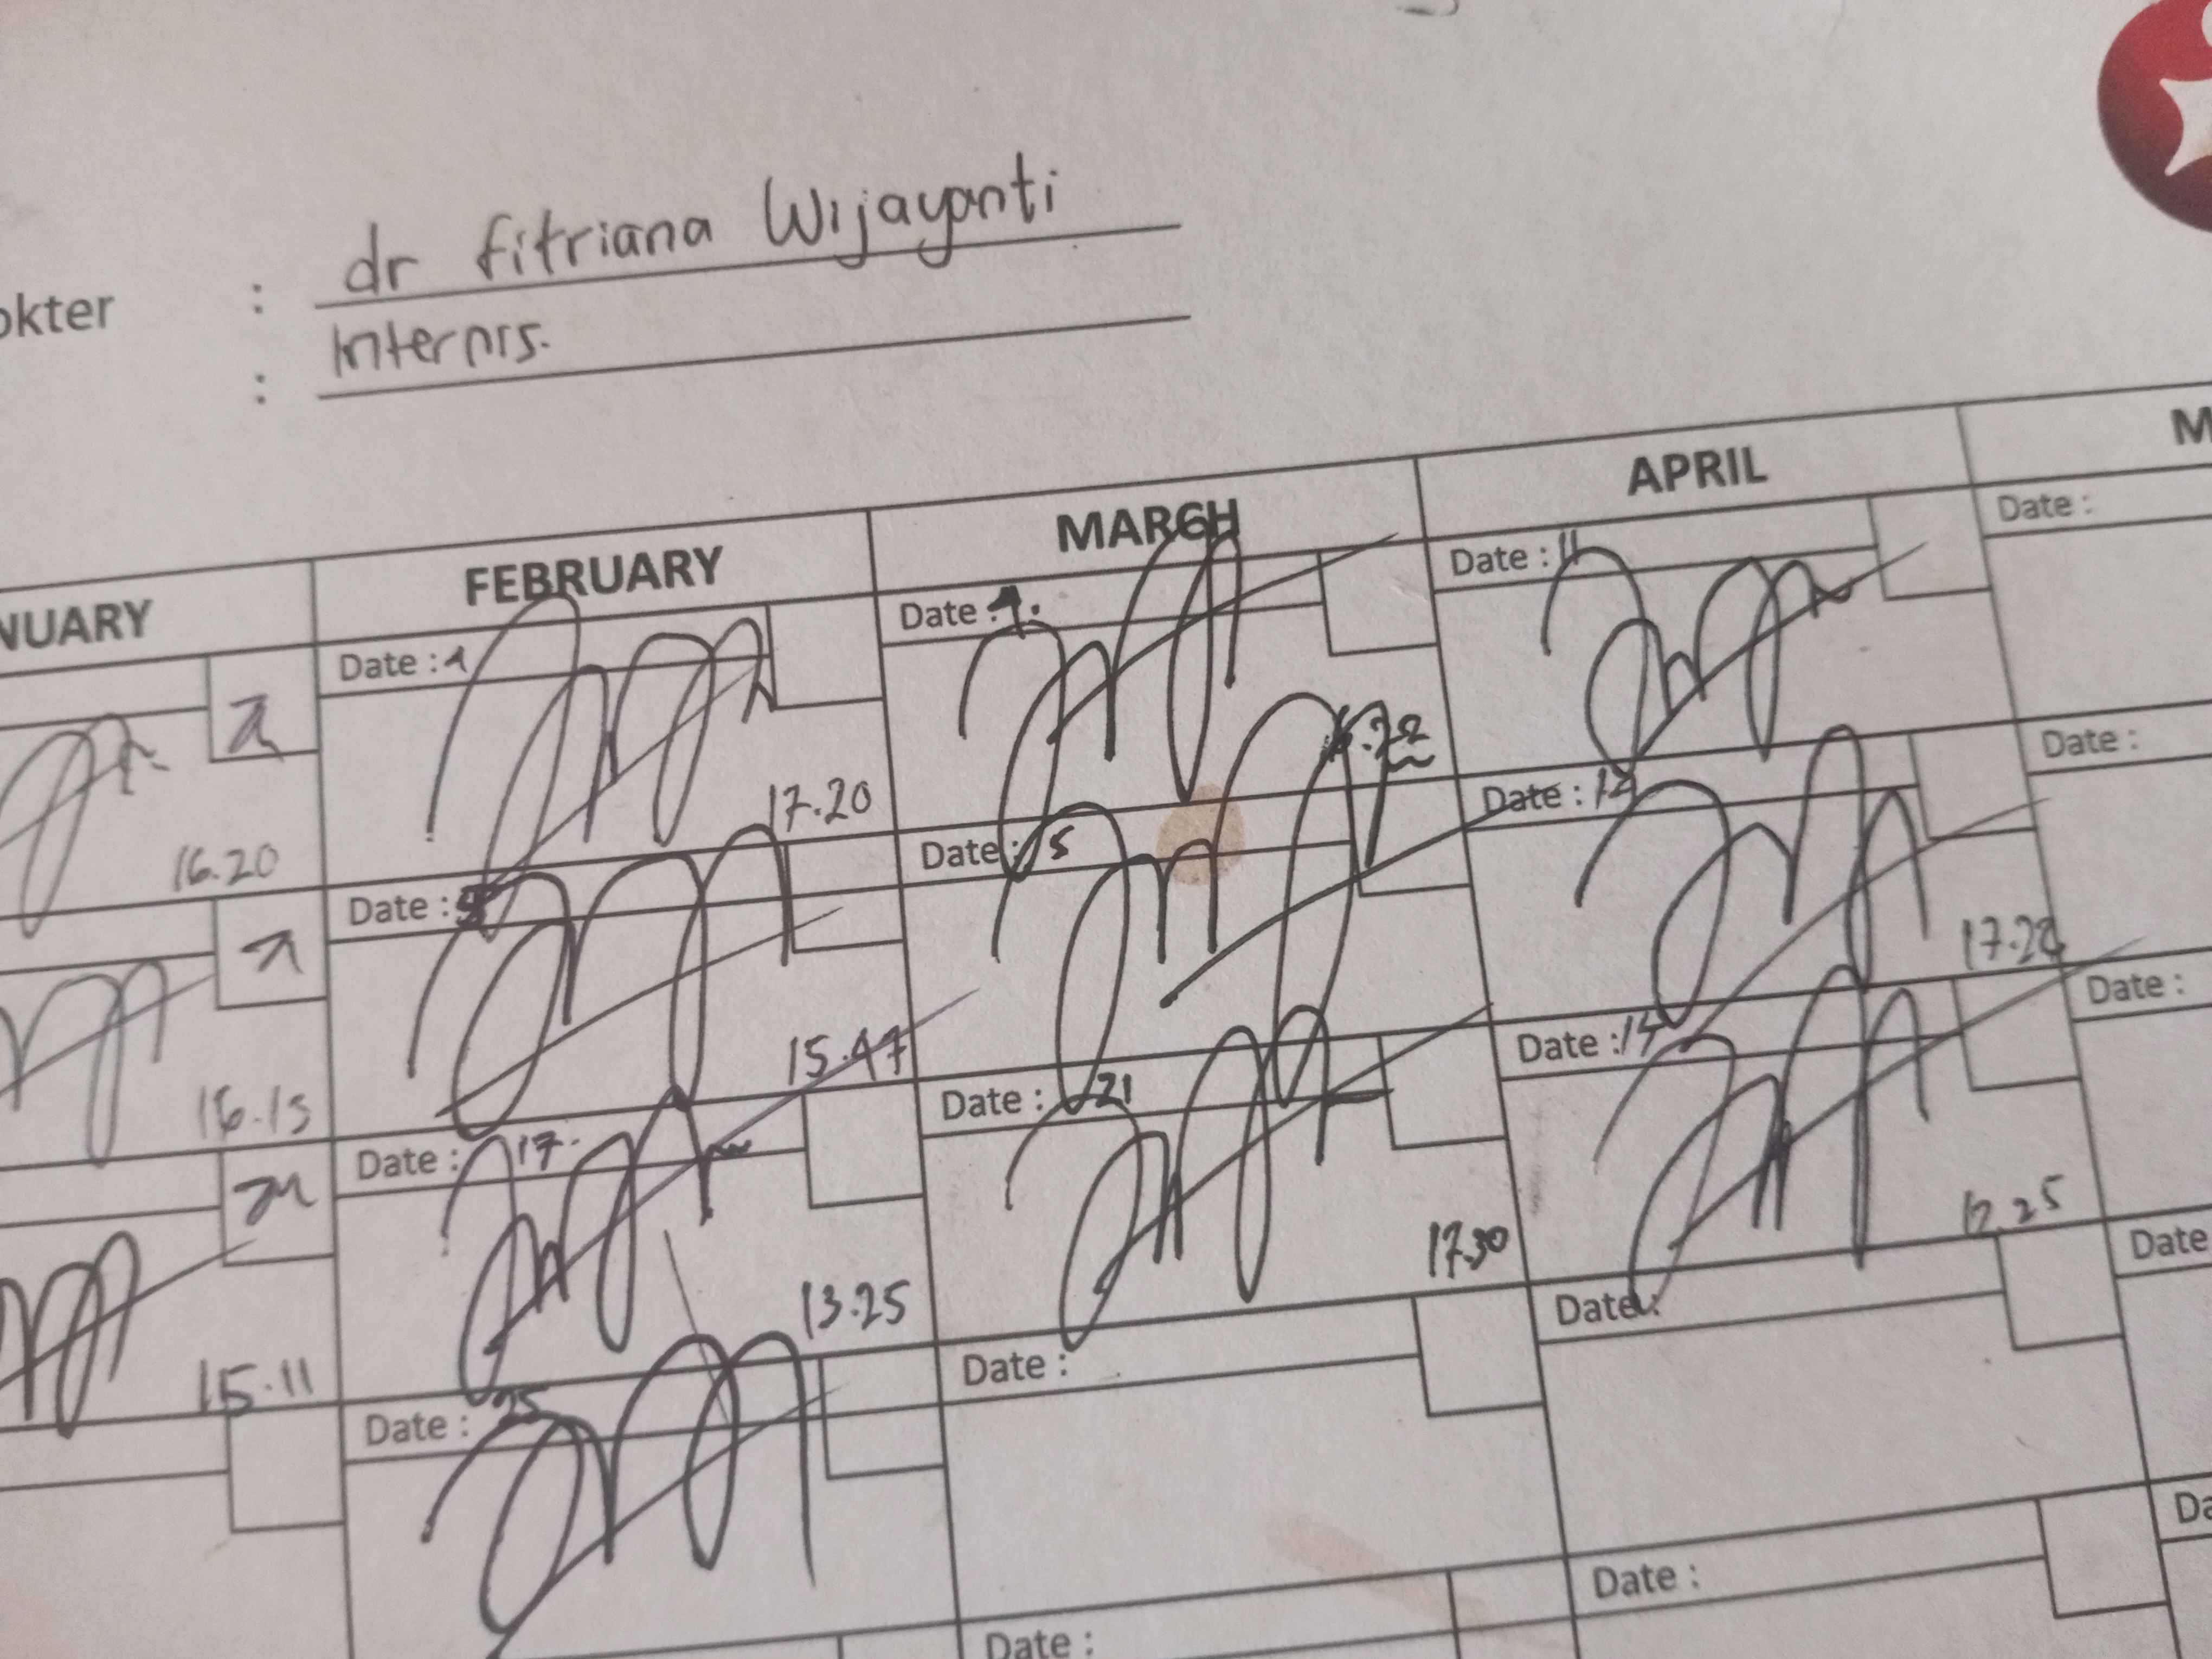 okter : dr Fitriana Wijayanti
: Internis.
NUARY FEBRUARY MARCH APRIL M
Date : 1 Date : Date : 11 Date :
16.20 17.20
Date : Date : 15 Date : 12 Date :
16.15 15.47 17.28
Date : 17. Date : 21 Date : 14 Date :
15.11 13.25 17.30 17.25
Date : 25 Date : Date : Date
Date : Date : Da